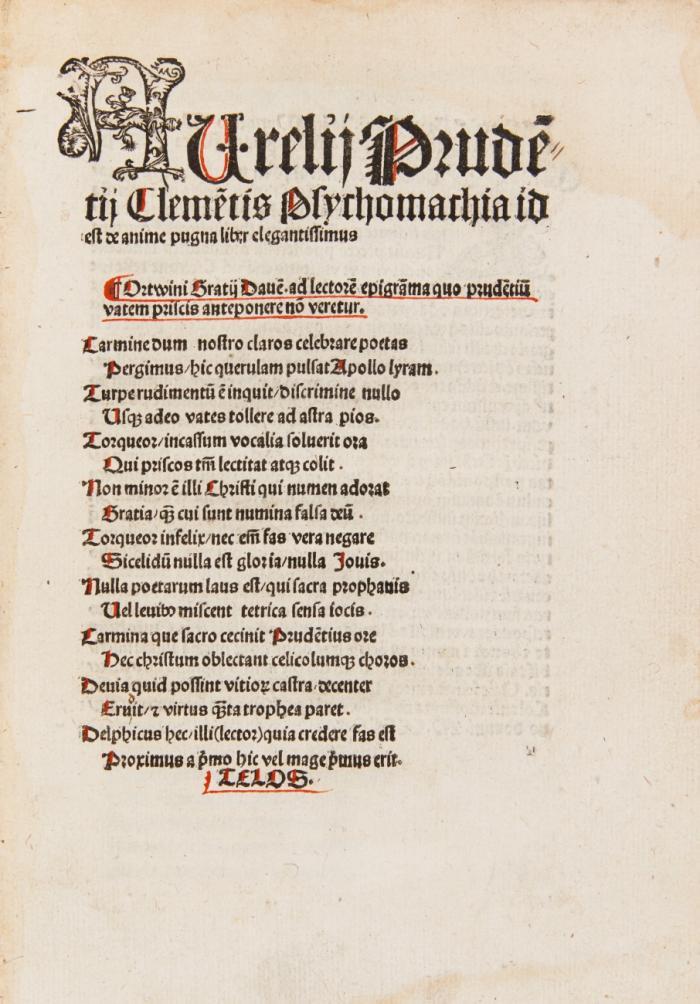 AUrelij Prudē-
tij Clemētis Psychomachia id
est de anime pugna liber elegantissimus
¶Ortwini Gratij Davē. ad lectorē epigrāma quo prudētiū
vatem priscis anteponere nō veretur.
Carmine dum nostro claros celebrare poetas
Pergimus/hic querulam pulsat Apollo lyram.
Turpe rudimentū ē inquit/discrimine nullo
Usqꝫ adeo vates tollere ad astra pios.
Torqueor/incassum vocalia soluerit ora
Qui priscos tm̄ lectitat atqꝫ colit.
Non minor ē illi Christi qui numen adorat
Gratia/qꝫ̄ cui sunt numina falsa deū.
Torqueor infelix/nec em̄ fas vera negare
Sicelidū nulla est gloria/nulla Jouis.
Nulla poetarum laus est/qui sacra prophanis
Uel leuibꝰ miscent tetrica sensa iocis.
Carmina que sacro cecinit Prudētius ore
Hec christum oblectant celicolumqꝫ choros.
Deuia quid possint vitioꝝ castra/decenter
Eruit/⁊ virtus qͣ̄ta trophea paret.
Delphicus hec/illi(lector)quia credere fas est
Proximus a p̄mo hic vel mage p̄mus erit.
TELOS.